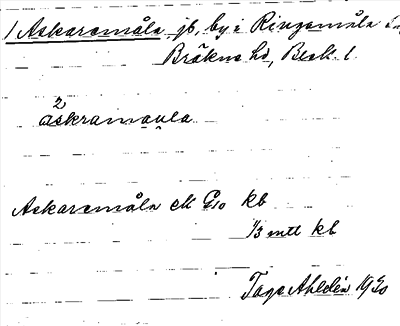 1 Askaremåla, jb, by i Ringamåla
Bräkne hd, Blek. l.
2
åskramåula
Askaremåla ek G10 kb
1/3 mtl kb
Tage Ahldén 1930